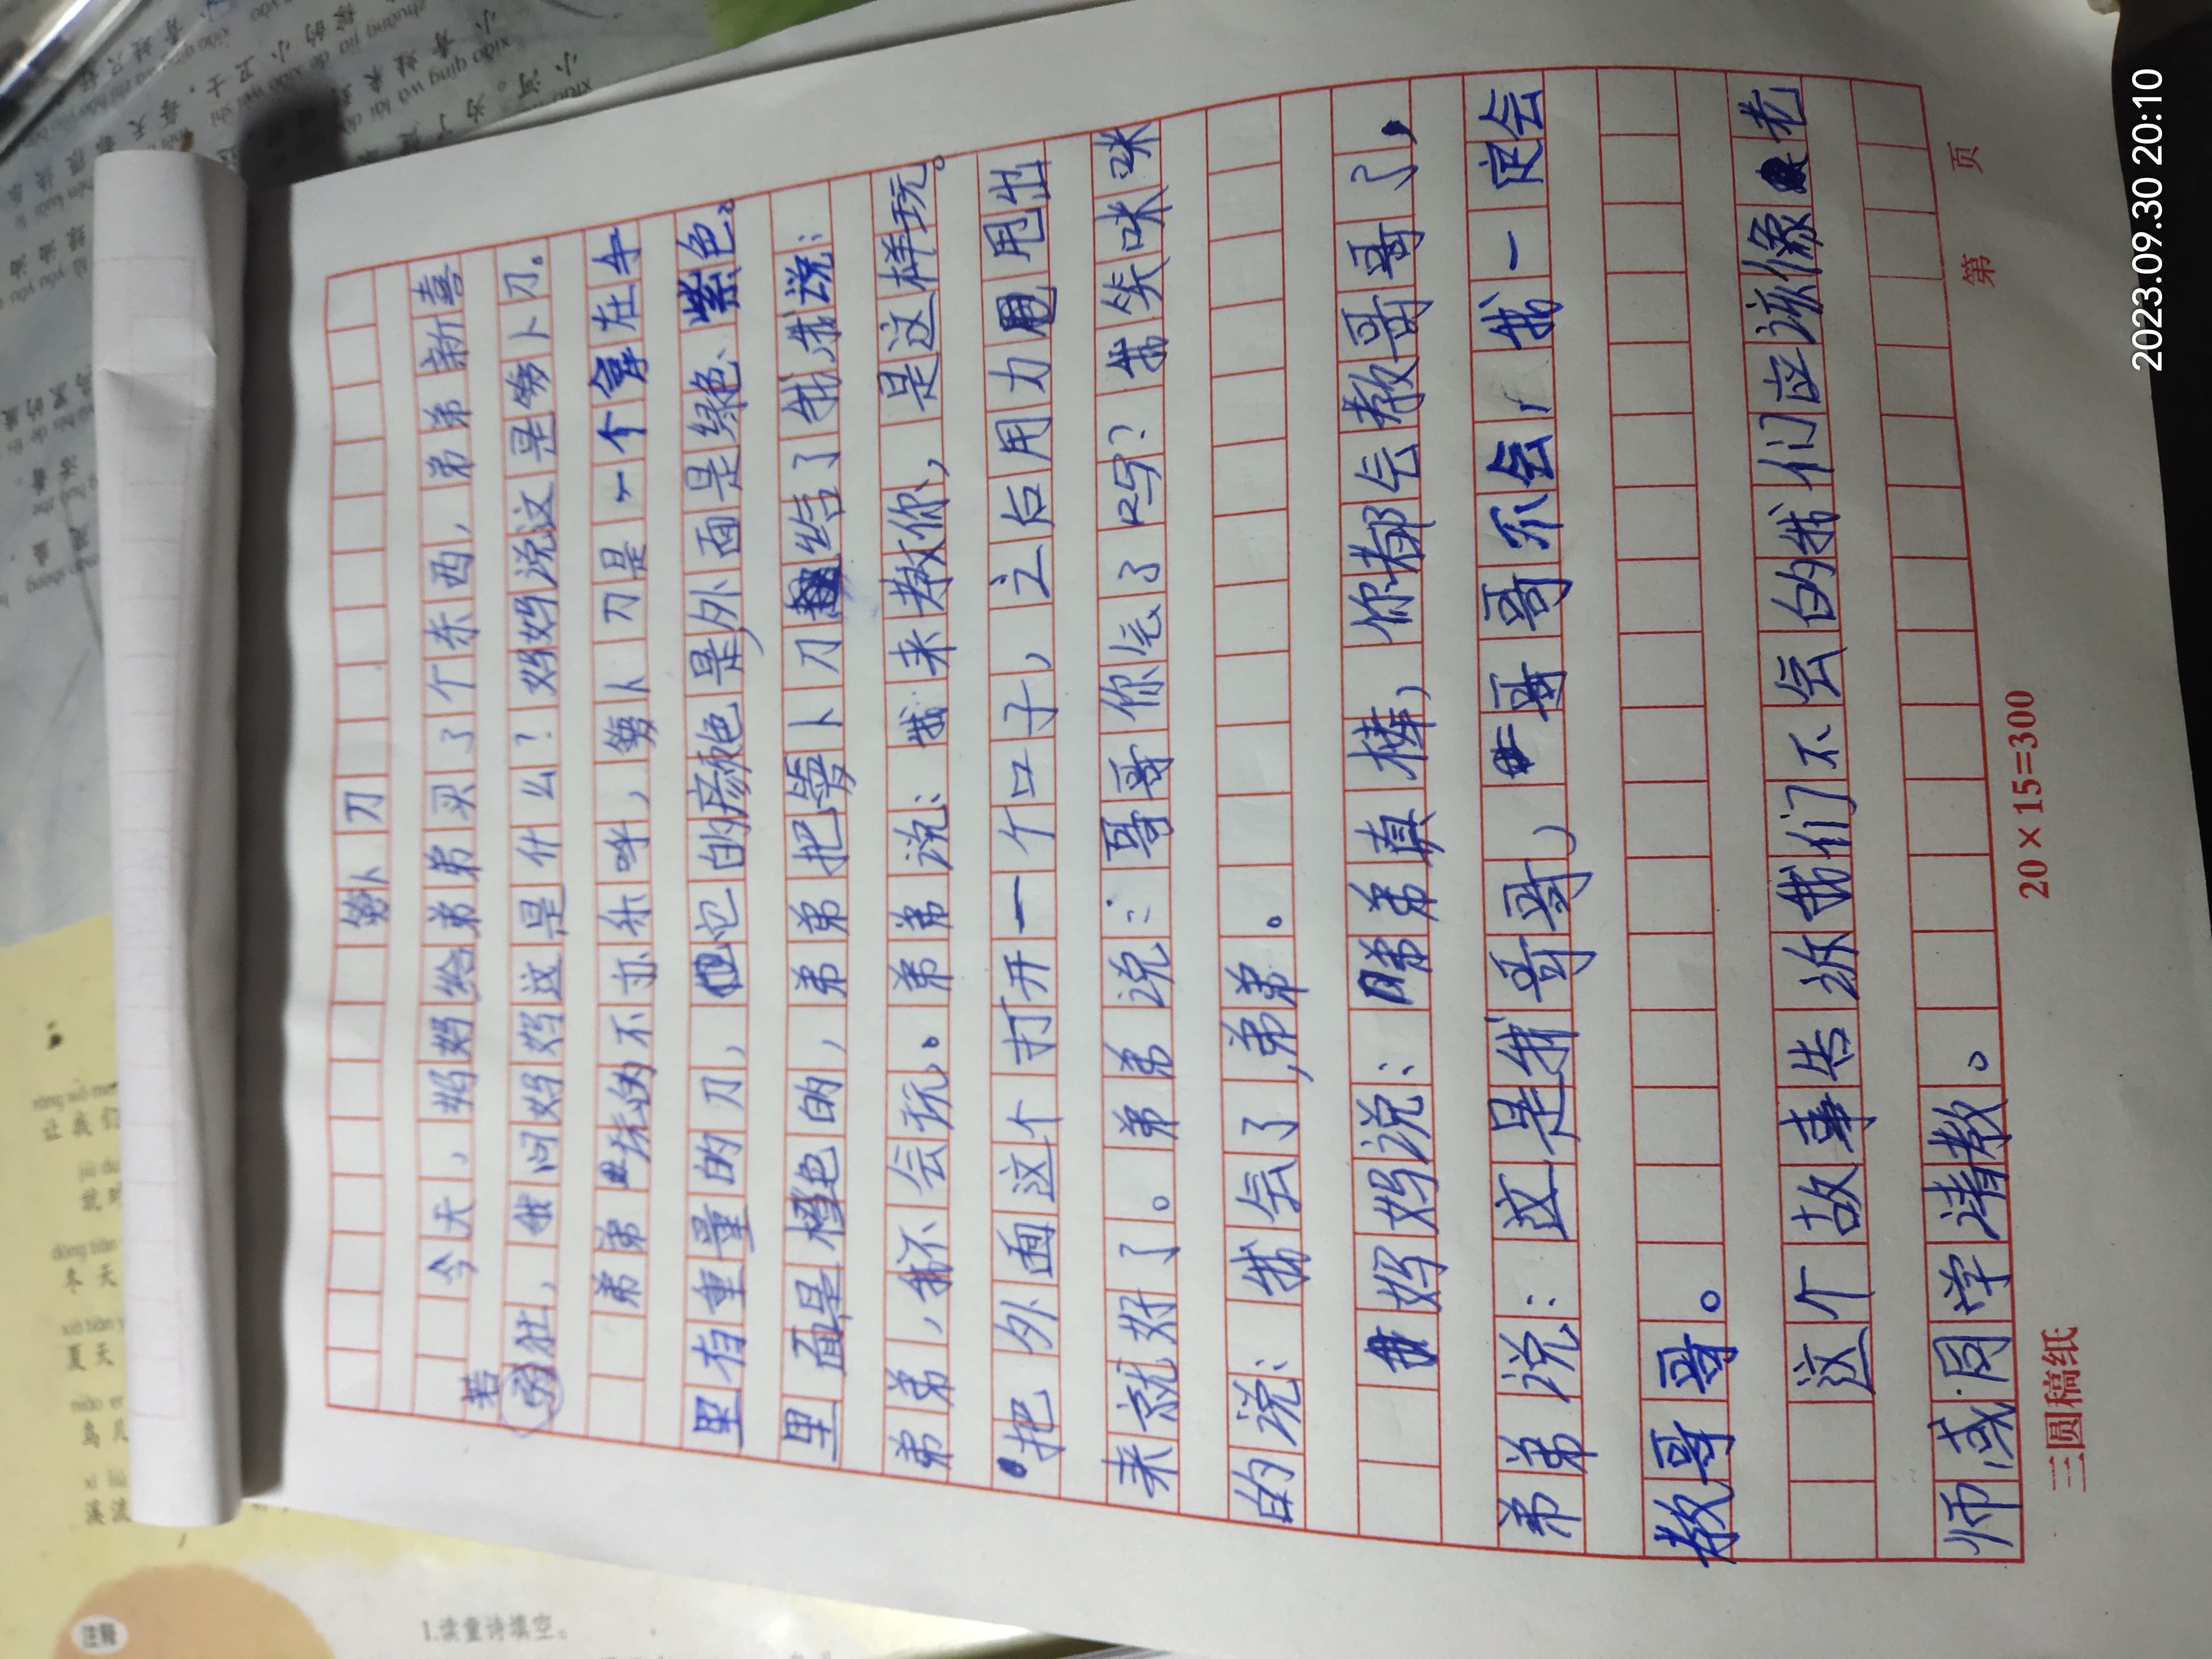 萝卜刀
今天,妈妈给弟弟买了个东西,弟弟新喜
若
狂,我问妈妈这是什么?妈妈说这是萝卜刀。
弟弟玩的不亦乐呼,萝卜刀是一个拿在手
里有重量的刀,它的颜色是,外面是绿色、紫色。
里面是橙色的,弟弟把萝卜刀给了我,我说:
弟弟,我不会玩。弟弟说:我来教你,是这样玩。
把外面这个打开一个口子,之后用力甩出
来就好了。弟弟说:哥哥你会了吗?我笑咪咪
的说:我会了,弟弟。
妈妈说:弟弟真棒,你都会教哥哥了,
弟弟说:这是我哥哥,哥哥不会,我一定会
教哥哥。
这个故事告诉我们不会的我们应该像老
师或同学请教。
三圆稿纸
20×15=300
第 页
2023.09.30 20:10
注释
1.读童诗填空。
让我们
冬天
夏天
溪流